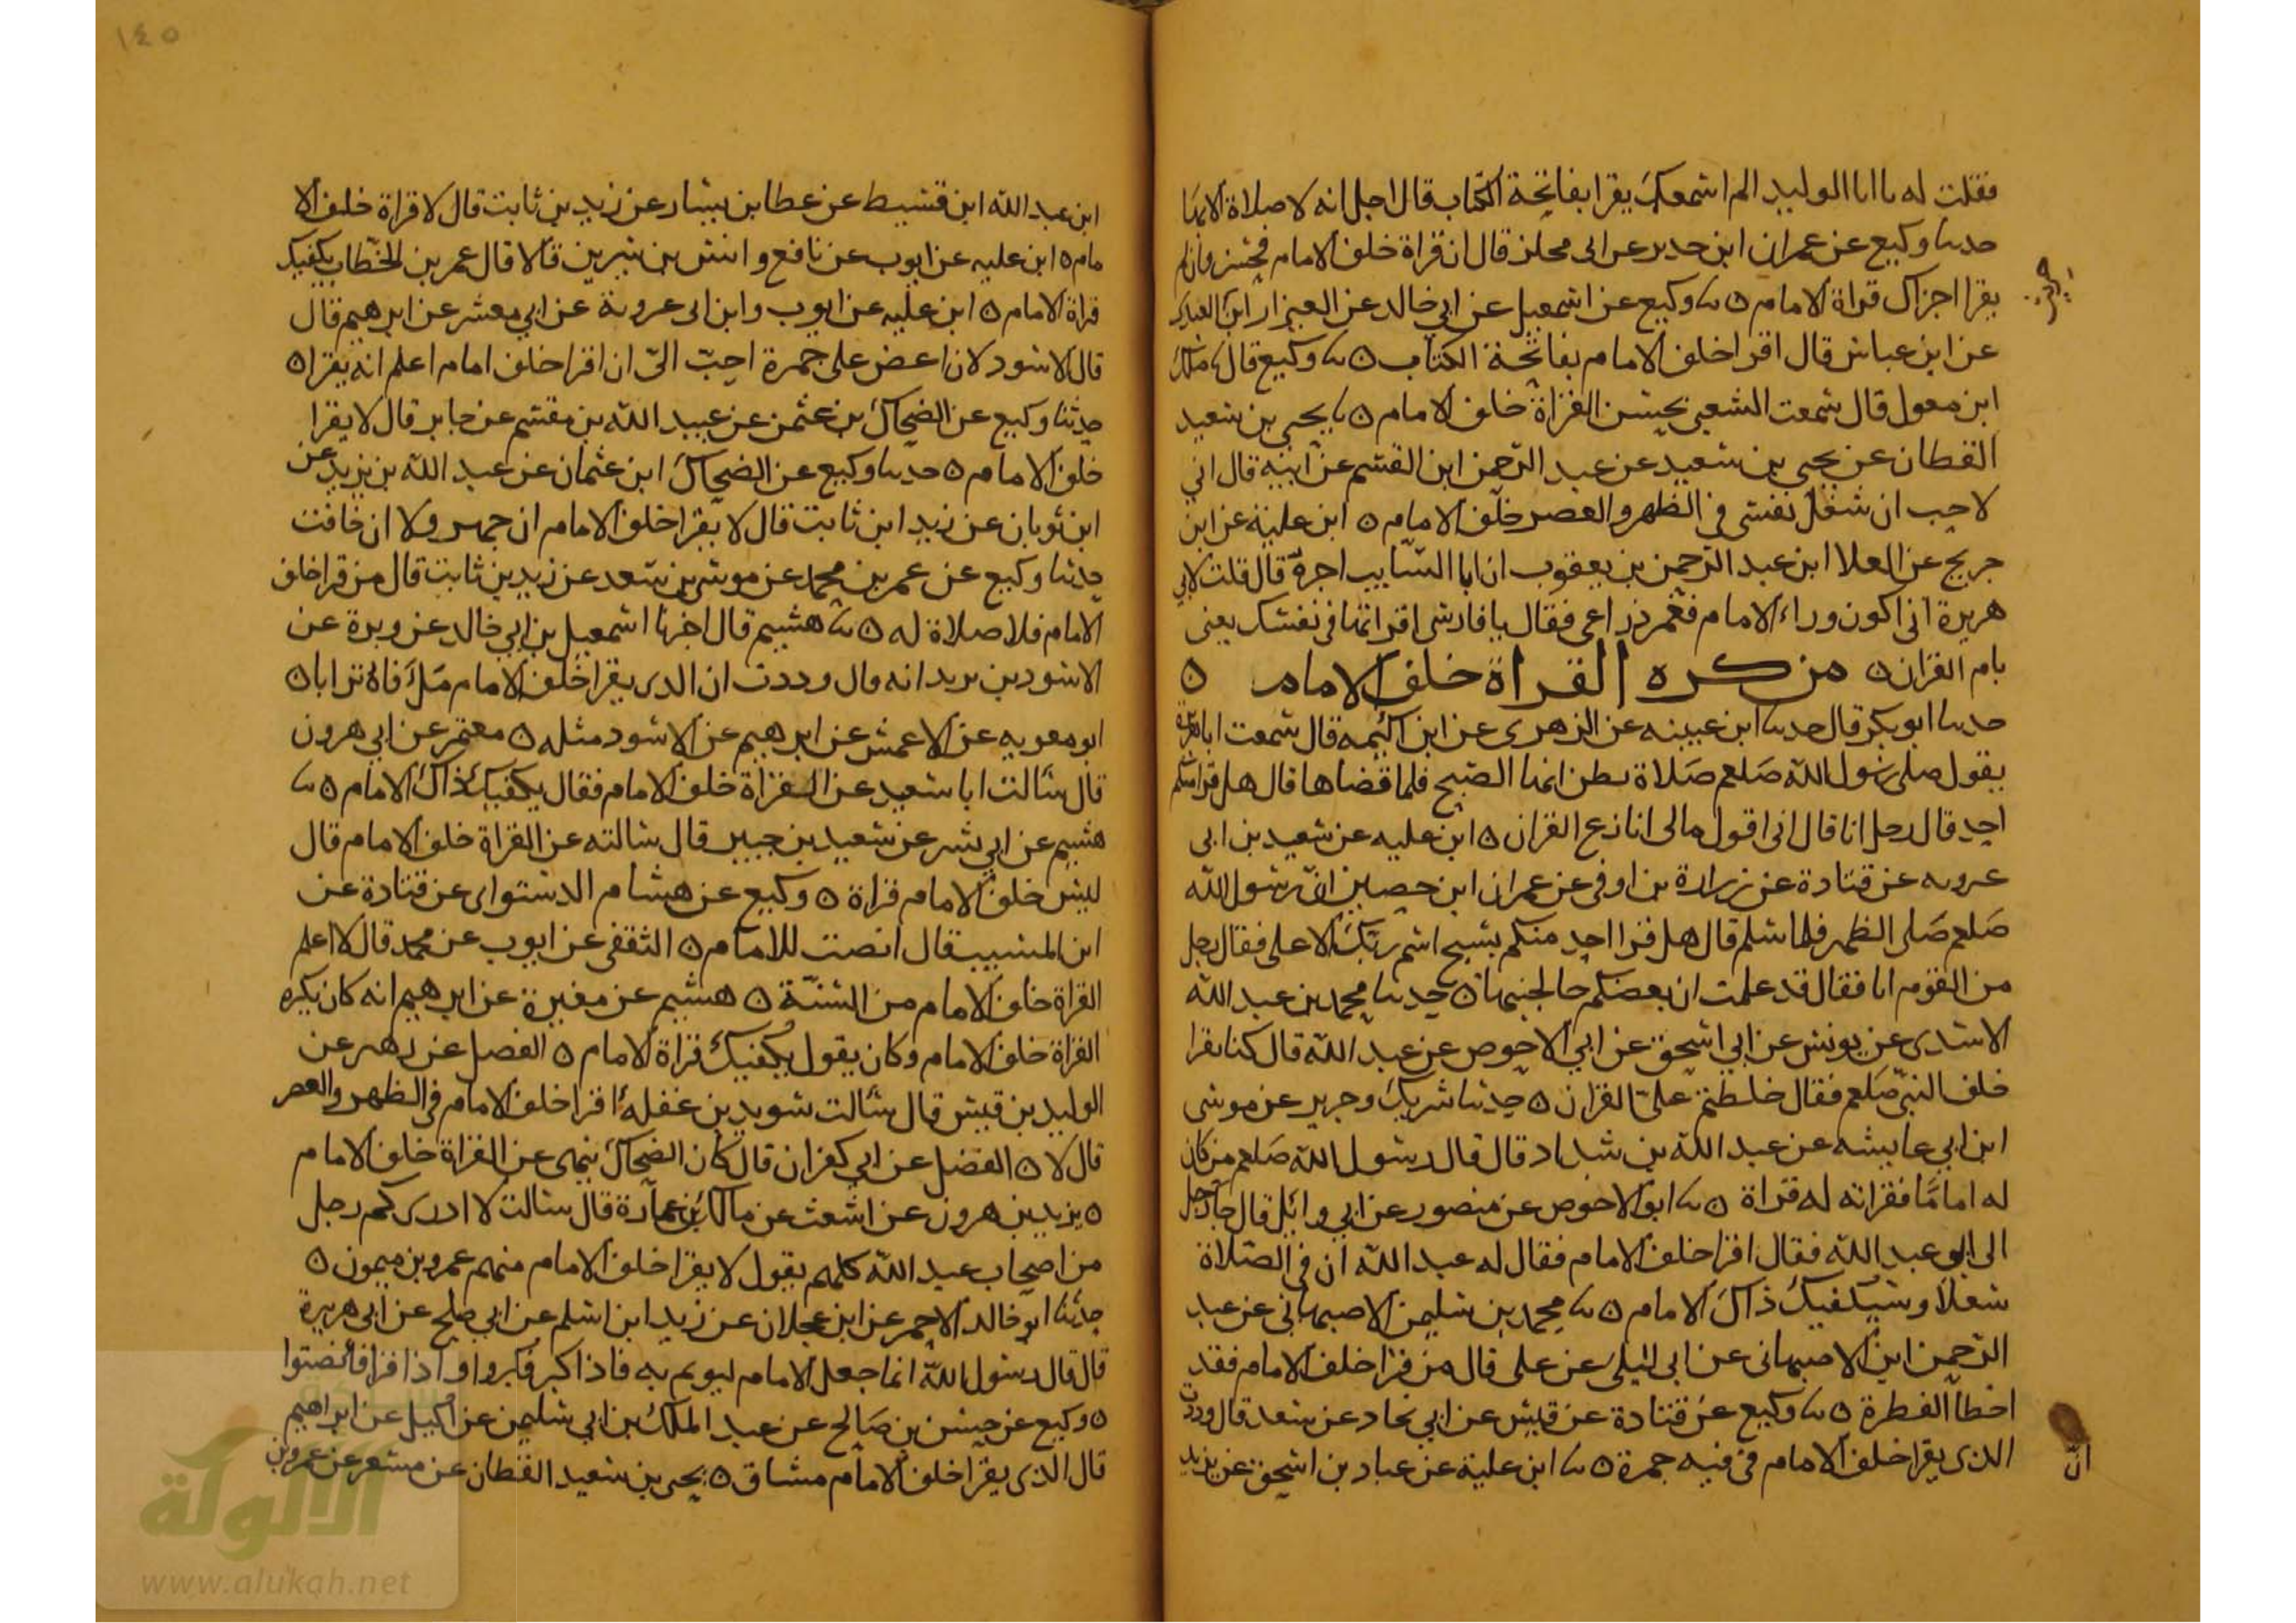 فقلت له يا ابا الوليد الم اسمعك يقرا بفاتحة الكتاب قال اجل انه لا صلاة الا بها
حدثنا وكيع عن عمران ابن حدير عن ابى مجلز قال ان قراة خلف الامام فحسن وان لم
يقرا اجزاك قراة الامام ٥ ثنا وكيع عن اسمعيل عن ابي خالد عن العيزار ابن
عن ابن عباس قال اقرا خلف الامام بفاتحة الكتاب ٥ ثنا وكيع قال ثنا ملك
ابن معول قال سمعت الشعبى يحسن القراة خلف الامام ٥ ثنا يحيى بن سعيد
القطان عن يحيى بن سعيد عن عبد الرحمن ابن القسم عن ابيه قال اني
لاحب ان شغل نفسى في الظهر والعصر خلف الامام ٥ ابن علية عن ابن
جريج عن العلا ابن عبد الرحمن بن يعقوب ان ابا السايب اخبره قال قلت لابي
هريرة انى اكون وراء الامام فغمز ذراعى فقال يا فارسى اقرا بها في نفسك يعنى
بام القران ٥ من كره القراة خلف الامام ٥
حدثنا ابو بكر قال حدثنا ابن عيينه عن الزهرى عن ابن اكيمه قال سمعت ابا هريرة
يقول صلى رسول الله صلعم صلاة نظن انها الصبح فلما قضاها قال هل قرا منكم
احد قال رجل انا قال انى اقول مالى انازع القران ٥ ابن عليه عن سعيد بن ابى
عروبه عن قتادة عن زرارة بن اوفى عن عمران ابن حصين ان رسول الله
صلعم صلى الظهر فلما سلم قال هل قرا احد منكم بسبح اسم ربك الاعلى فقال رجل
من القوم انا فقال قد علمت ان بعضكم خالجنيها ٥ حدثنا محمد بن عبد الله
الاسدى عن يونس عن ابي اسحق عن ابي الاحوص عن عبد الله قال كنا نقرا
خلف النبي صلعم فقال خلطتم على القران ٥ حدثنا شريك وجرير عن موسى
ابن ابي عايشه عن عبد الله بن شداد قال قال رسول الله صلعم من كان
له اماما فقراته له قراة ٥ ثنا ابو الاحوص عن منصور عن ابي وائل قال جا رجل
الى عبد الله فقال اقرا خلف الامام فقال له عبد الله ان في الصلاة
شغلا وسيكفيك ذاك الامام ٥ ثنا محمد بن سليمن الاصبهاني عن عبد
الرحمن ابن الاصبهانى عن ابى ليلى عن على قال من قرا خلف الامام فقد
اخطا الفطرة ٥ ثنا وكيع عن قتادة عن قيس عن ابي نجاد عن سعد قال وددت
ان
الذى يقرا خلف الامام في فيه جمرة ٥ ثنا ابن علية عن عباد بن اسحق عن يزيد
١٤٥
ابن عبد الله ابن قسيط عن عطا بن يسار عن زيد بن ثابت قال لا قراة خلف الا
مام ٥ ابن عليه عن ايوب عن نافع وانس بن سيرين قالا قال عمر بن الخطاب يكفيك
قراة الامام ٥ ابن عليه عن ايوب وابن ابى عروبة عن ابي معشر عن ابرهيم قال
قال الاسود لان اعض على جمرة احب الى ان اقرا خلف امام اعلم انه يقرا ٥
حدثنا وكيع عن الضحاك بن عثمن عن عبيد الله بن مقسم عن جابر قال لا يقرا
خلف الامام ٥ حدثنا وكيع عن الضحاك ابن عثمان عن عبد الله بن يزيد عن
ابن ثوبان عن زيد ابن ثابت قال لا يقرا خلف الامام ان جهر ولا ان خافت
حدثنا وكيع عن عمر بن محمد عن موسى بن سعد عن زيد بن ثابت قال من قرا خلف
الامام فلا صلاة له ٥ ثنا هشيم قال اخبرنا اسمعيل بن ابي خالد عن وبرة عن
الاسود بن يزيد انه قال وددت ان الذى يقرا خلف الامام ملئ فاه ترابا ٥
ابو معويه عن الاعمش عن ابرهيم عن الاسود مثله ٥ معتمر عن ابي هرون
قال سالت ابا سعيد عن القراة خلف الامام فقال يكفيك ذاك الامام ٥ ثنا
هشيم عن ابي بشر عن سعيد بن جبير قال سالته عن القراة خلف الامام قال
ليس خلف الامام قراة ٥ وكيع عن هشام الدستواى عن قتادة عن
ابن المسيب قال انصت للامام ٥ الثقفى عن ايوب عن محمد قال لا اعلم
القراة خلف الامام من السنة ٥ هشيم عن مغيرة عن ابرهيم انه كان يكره
القراة خلف الامام وكان يقول يكفيك قراة الامام ٥ الفضل عن زهير عن
الوليد بن قيس قال سالت سويد بن غفله اقرا خلف الامام في الظهر والعصر
قال لا ٥ الفضل عن ابي كفران قال كان الضحاك ينهى عن القراة خلف الامام
٥ يزيد بن هرون عن اشعث عن مالك بن عمارة قال سالت لا ادرى كم رجل
من اصحاب عبد الله كلهم يقول لا يقرا خلف الامام منهم عمرو بن ميمون ٥
حدثنا ابو خالد الاحمر عن ابن عجلان عن زيد ابن اسلم عن ابي صلح عن ابى هريرة
قال قال رسول الله انما جعل الامام ليوتم به فاذا كبر فكبروا واذا قرا فانصتوا
٥ وكيع عن حسن بن صالح عن عبد الملك بن ابي سليمن عن اكيل عن ابراهيم
قال الذى يقرا خلف الامام مشاق ٥ يحيى بن سعيد القطان عن مسعر عن عمرو بن
الألوكة
www.alukah.net